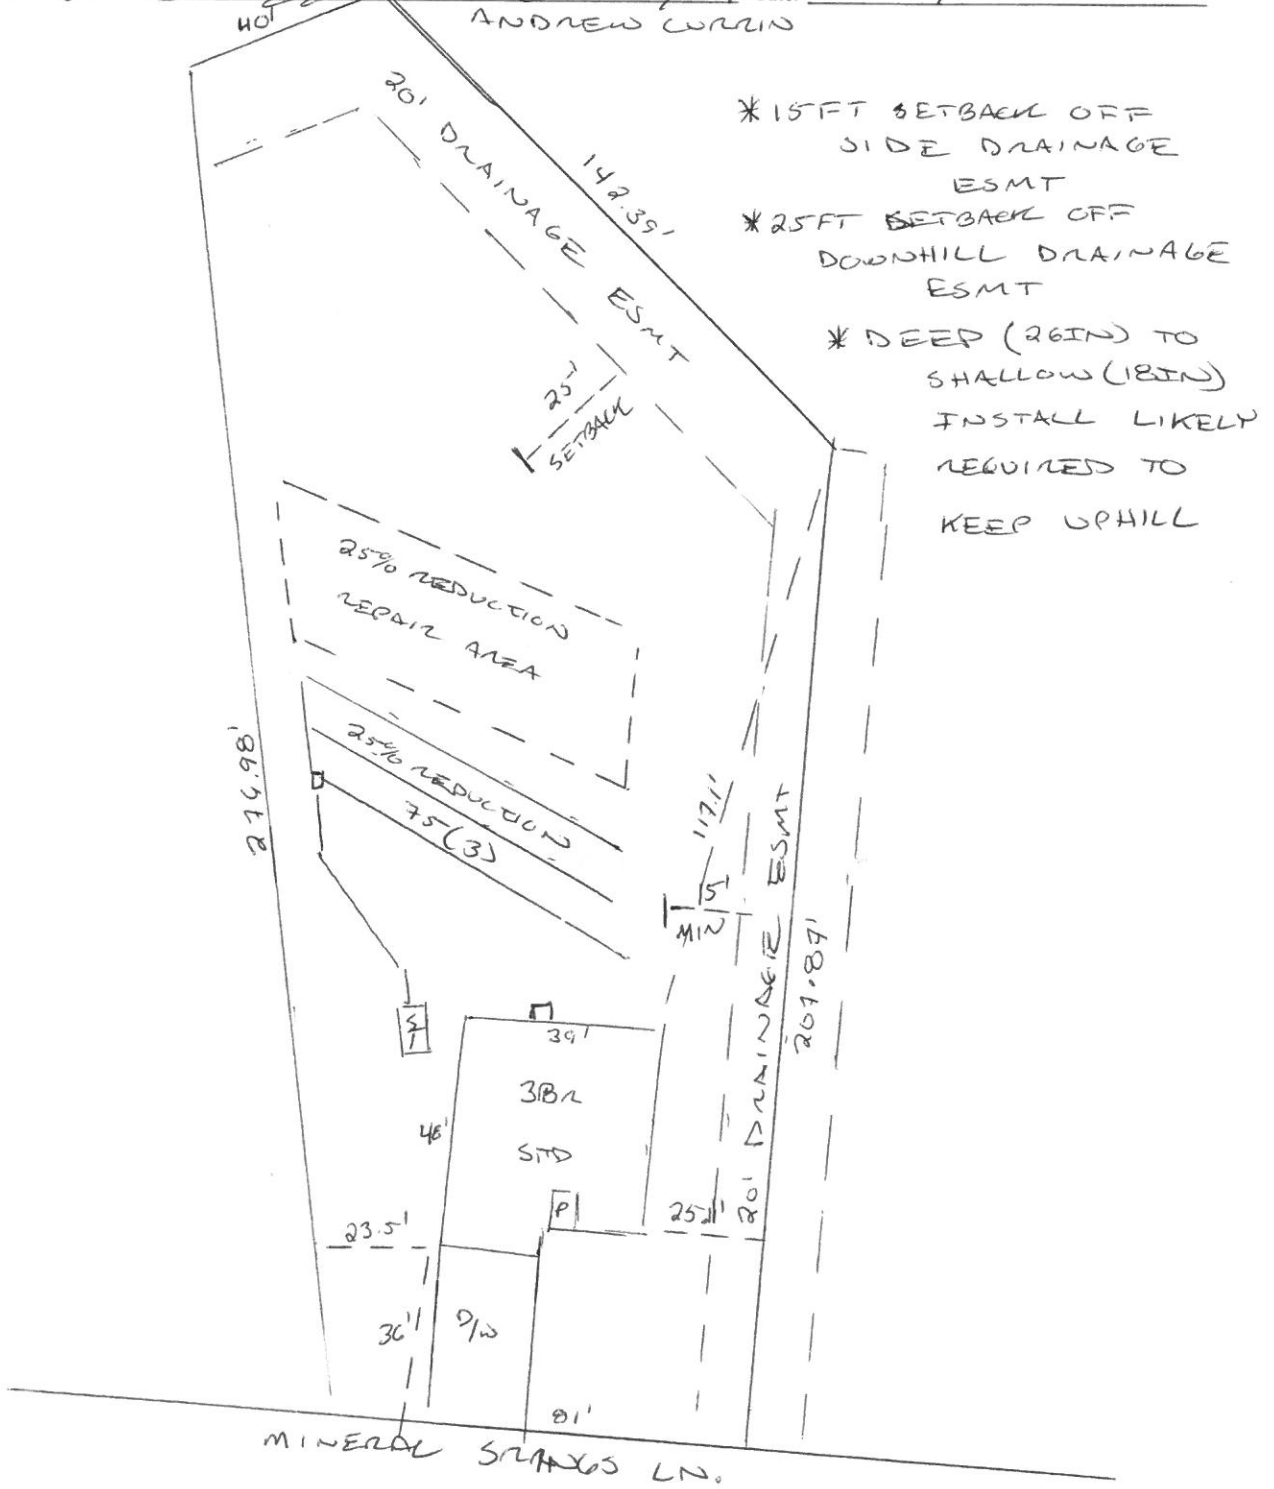 40'
ANDREW CURRIN
20' DRAINAGE ESMT
142.39'
*15FT SETBACK OFF
SIDE DRAINAGE
ESMT
*25FT SETBACK OFF
DOWNHILL DRAINAGE
ESMT
* DEEP (26IN) TO
SHALLOW (18IN)
INSTALL LIKELY
REQUIRED TO
KEEP UPHILL
25'
SETBACK
25% REDUCTION
REPAIR AREA
25% REDUCTION
75(3)
275.98'
117.1'
15'
MIN
20' DRAINAGE ESMT
207.87'
ST
39'
3BR
48'
P
23.5'
36'
D/W
81'
MINERAL SPRINGS LN.